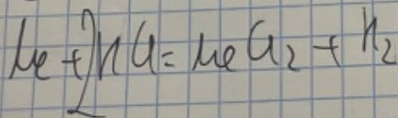 Me + 2HCl = MeCl₂ + H₂